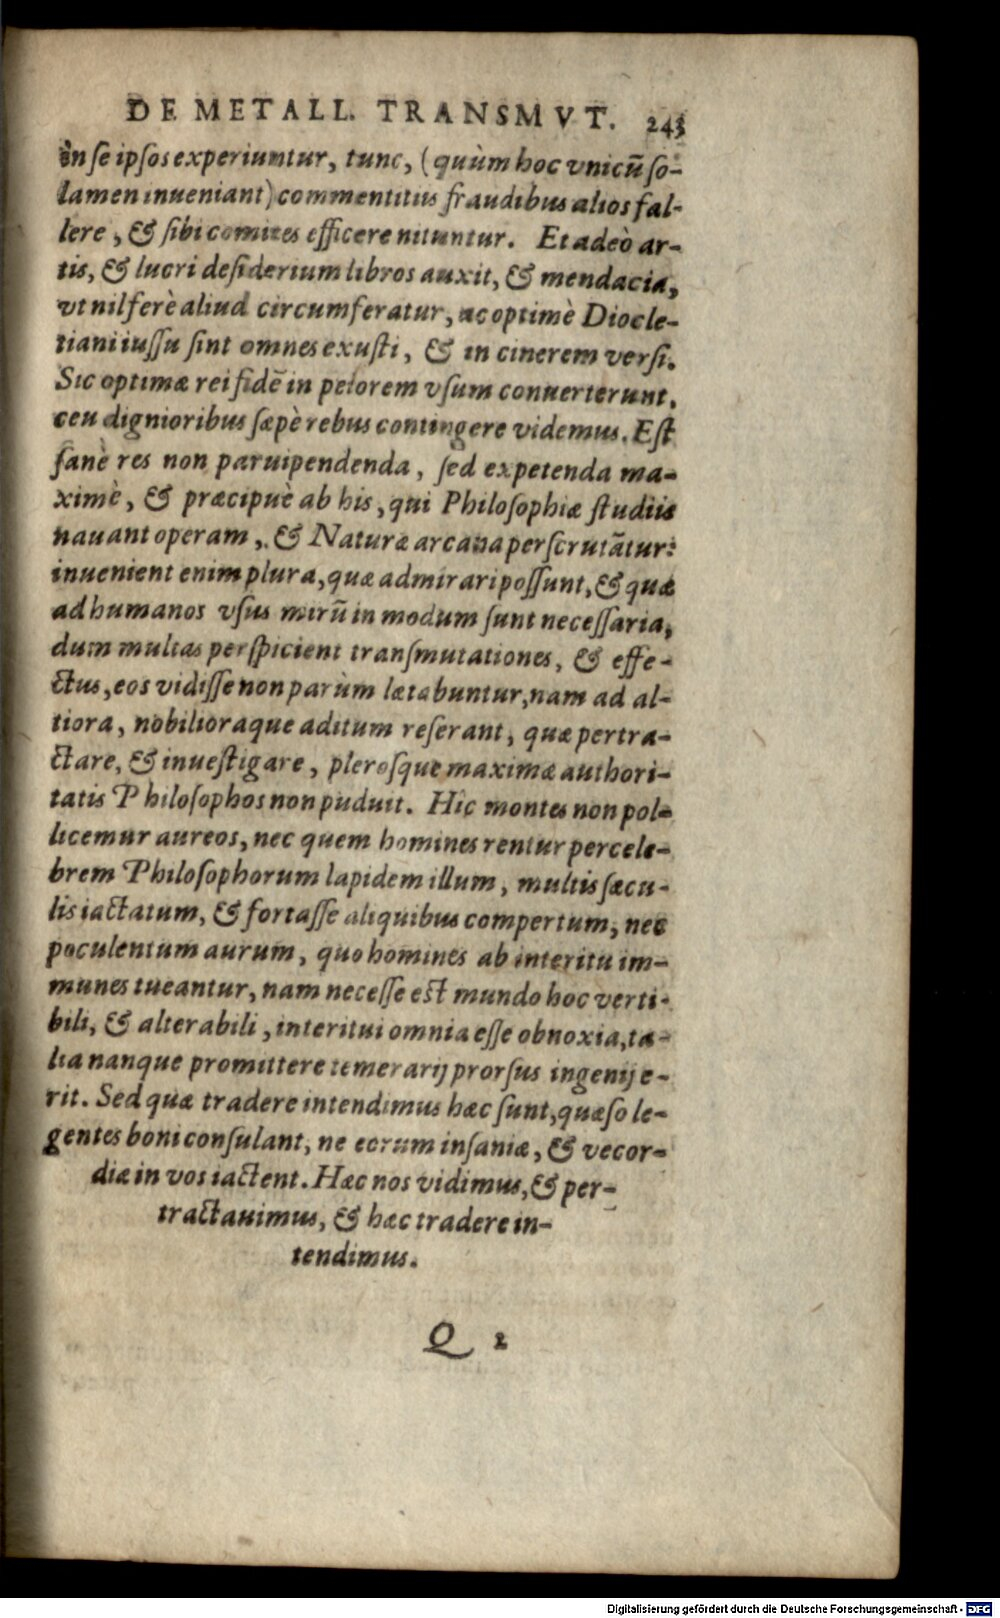 DE METALL. TRANSMVT. 243
in se ipsos experiuntur, tunc, (quùm hoc vnicũ so-
lamen inueniant) commentitiis fraudibus alios fal-
lere, & sibi comites efficere nituntur. Et adeò ar-
tis, & lucri desiderium libros auxit, & mendacia,
vt nil ferè aliud circumferatur, ac optimè Diocle-
tiani iussu sint omnes exusti, & in cinerem versi.
Sic optimæ rei fidẽ in peiorem vsum conuerterunt,
ceu dignioribus sæpè rebus contingere videmus. Est
sanè res non paruipendenda, sed expetenda ma-
ximè, & præcipuè ab his, qui Philosophiæ studiis
nauant operam, & Naturæ arcana perscrutãtur:
inuenient enim plura, quæ admirari possunt, & quæ
ad humanos vsus mirũ in modum sunt necessaria,
dum multas perspicient transmutationes, & effe-
ctus, eos vidisse non parùm lætabuntur, nam ad al-
tiora, nobilioraque aditum reserant, quæ pertra-
ctare, & inuestigare, plerosque maximæ authori-
tatis Philosophos non puduit. Hic montes non pol-
licemur aureos, nec quem homines rentur percele-
brem Philosophorum lapidem illum, multis sæcu-
lis iactatum, & fortasse aliquibus compertum, nec
poculentum aurum, quo homines ab interitu im-
munes tueantur, nam necesse est mundo hoc verti-
bili, & alterabili, interitui omnia esse obnoxia, ta-
lia nanque promittere temerarij prorsus ingenij e-
rit. Sed quæ tradere intendimus hæc sunt, quæso le-
gentes boni consulant, ne eorum insaniæ, & vecor-
diæ in vos iactent. Hæc nos vidimus, & per-
tractauimus, & hæc tradere in-
tendimus.
Q 2
Digitalisierung gefördert durch die Deutsche Forschungsgemeinschaft - DFG